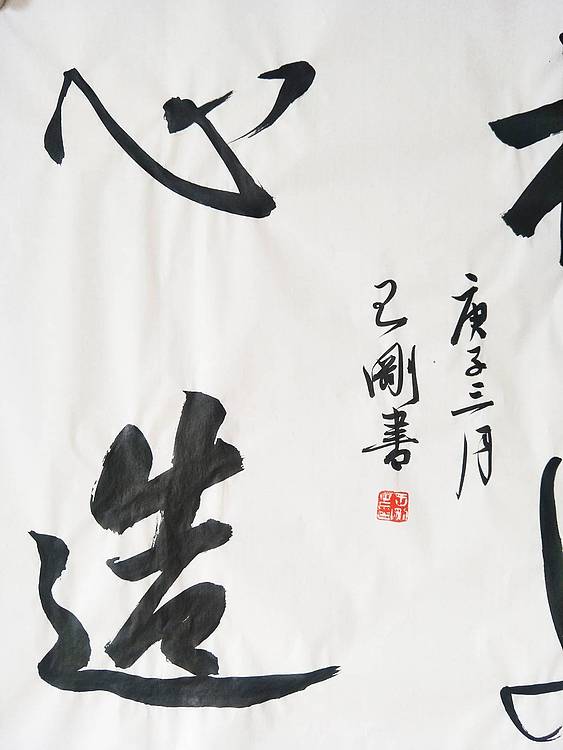 庚子三月
王剛書
心造